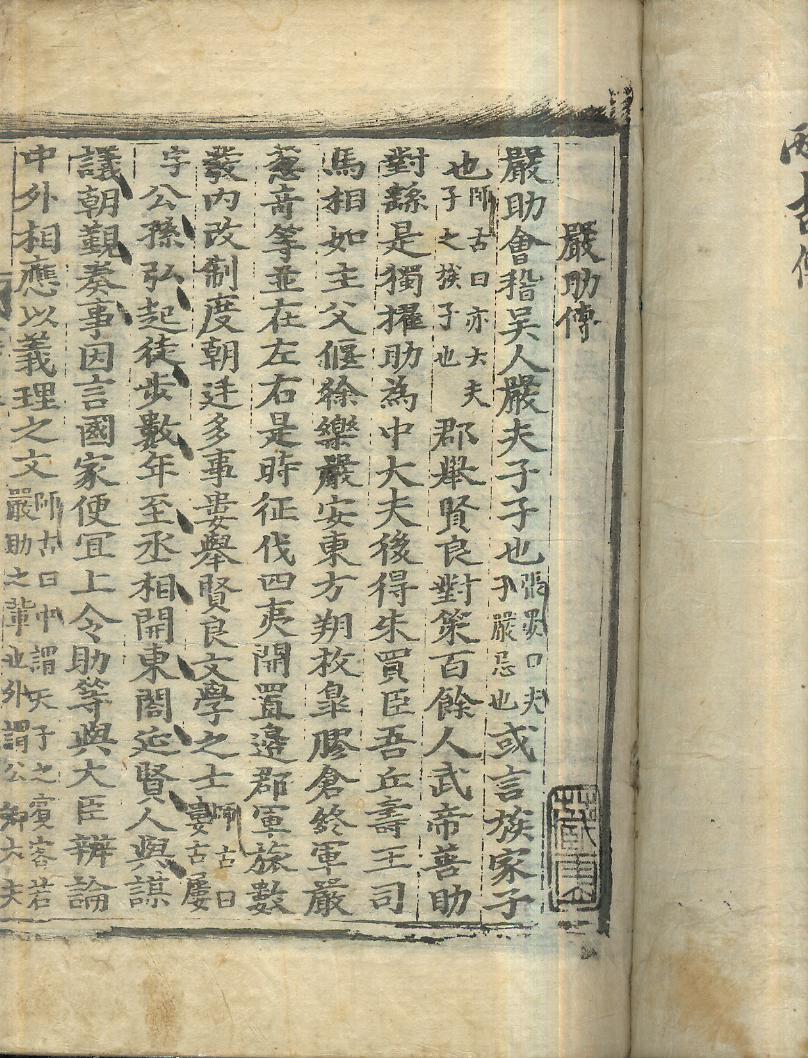 嚴助傳
嚴助會稽吴人嚴夫子子也張晏曰夫子嚴忌也或言族家子
也師古曰亦云夫子之族子也郡舉賢良對策百餘人武帝善助
對繇是獨擢助為中大夫後得朱買臣吾丘壽王司
馬相如主父偃徐樂嚴安東方朔枚皐膠倉終軍嚴
葱竒等並在左右是時征伐四夷開置邉郡軍旅數
發内改制度朝廷多事婁舉賢良文學之士師古曰婁古屢
字公孫弘起徒步數年至丞相開東閤延賢人與謀
議朝覲奏事因言國家便宜上令助等與大臣辨論
中外相應以義理之文師古曰中謂天子之賓客若嚴助之軰也外謂公卿大夫